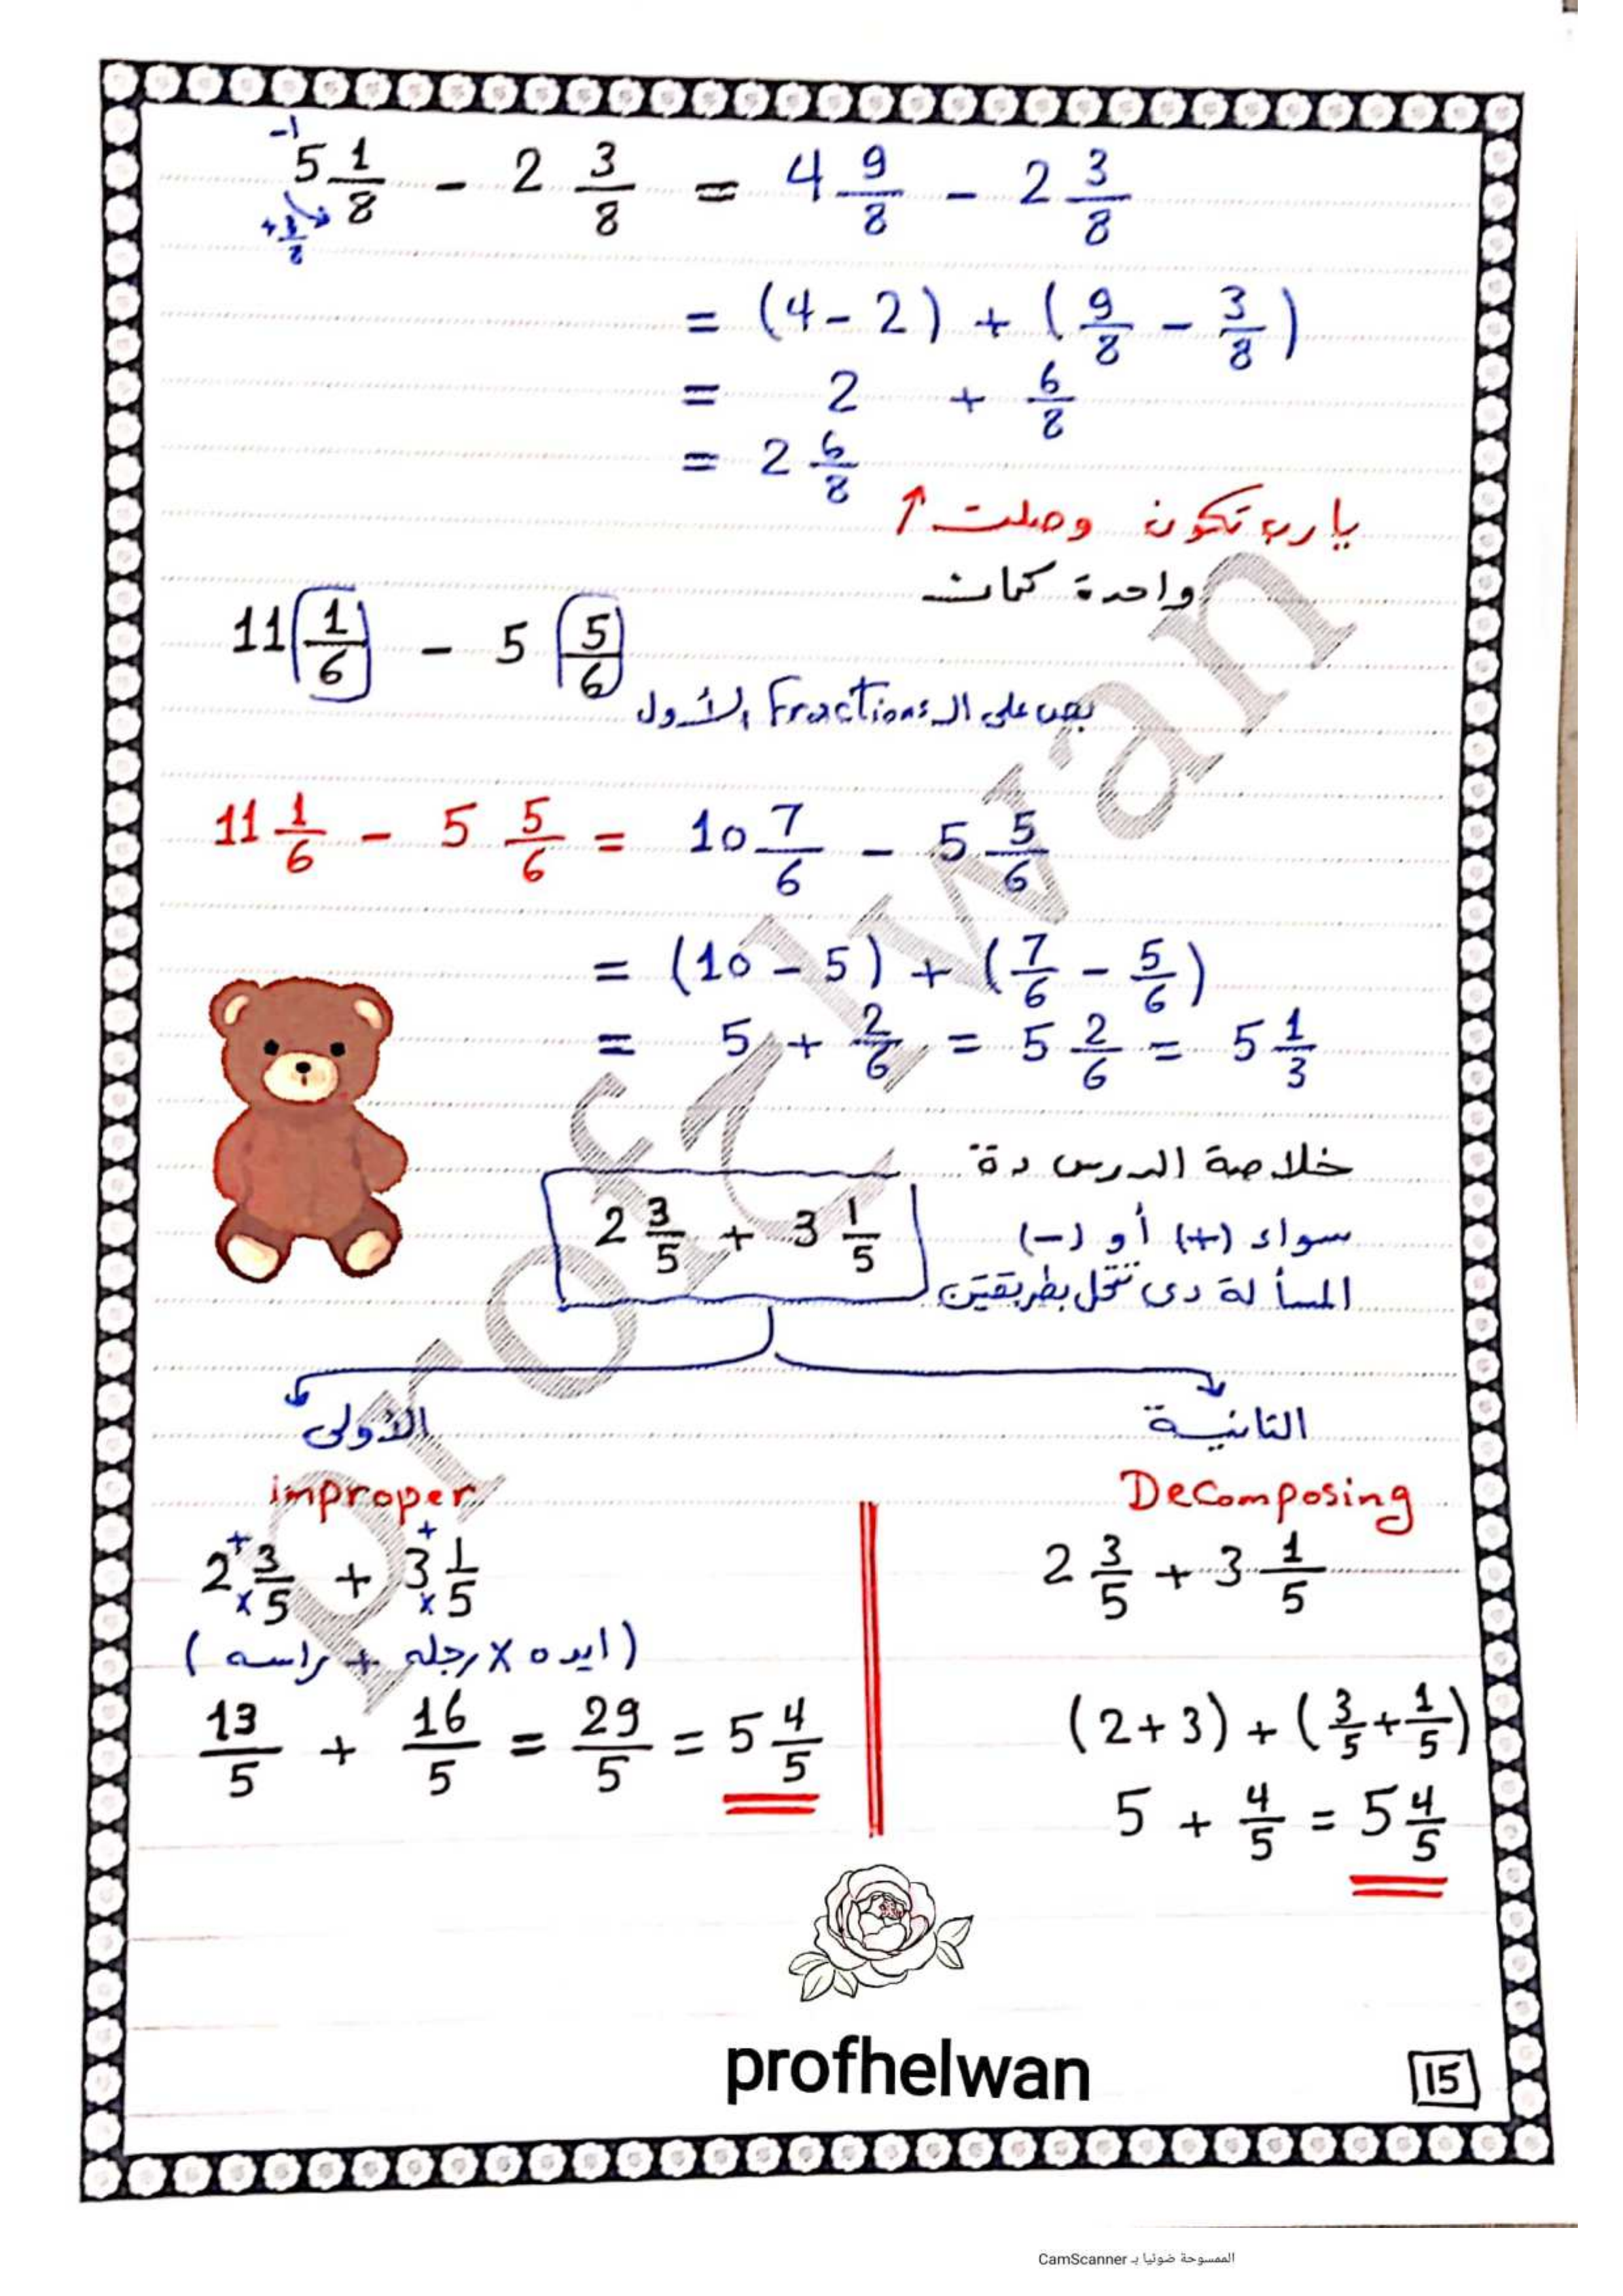 -1
5 1/8 - 2 3/8 = 4 9/8 - 2 3/8
= (4 - 2) + (9/8 - 3/8)
= 2 + 6/8
= 2 6/8
يارب تكون وصلت ↑
واحدة كمان
11 1/6 - 5 5/6
بص على الـ Fractions الأول
11 1/6 - 5 5/6 = 10 7/6 - 5 5/6
= (10 - 5) + (7/6 - 5/6)
= 5 + 2/6 = 5 2/6 = 5 1/3
خلاصة الدرس دة
2 3/5 + 3 1/5
سواء (+) أو (-)
المسألة دى تتحل بطريقتين
الأولى
improper
2 3/5 + 3 1/5
+ × + ×
(ايده × رجله + راسه)
13/5 + 16/5 = 29/5 = 5 4/5
التانية
Decomposing
2 3/5 + 3 1/5
(2+3) + (3/5 + 1/5)
5 + 4/5 = 5 4/5
prof helwan
profhelwan
15
الممسوحة ضوئيا بـ CamScanner